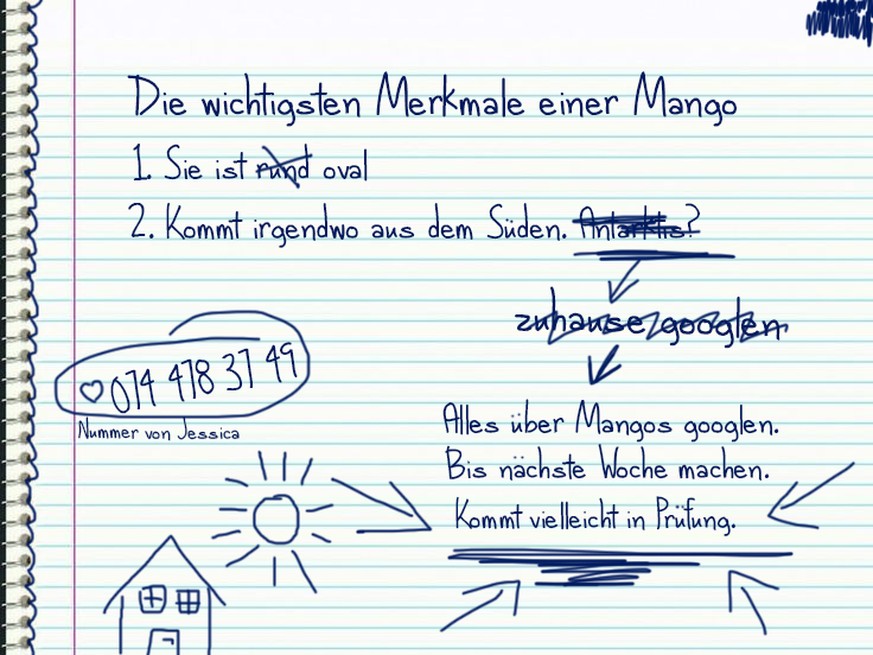 Die wichtigsten Merkmale einer Mango
1. Sie ist rund oval
2. Kommt irgendwo aus dem Süden. Antarktis?
zuhause googlen
Alles über Mangos googlen.
Bis nächste Woche machen.
Kommt vielleicht in Prüfung.
074 478 37 49
Nummer von Jessica